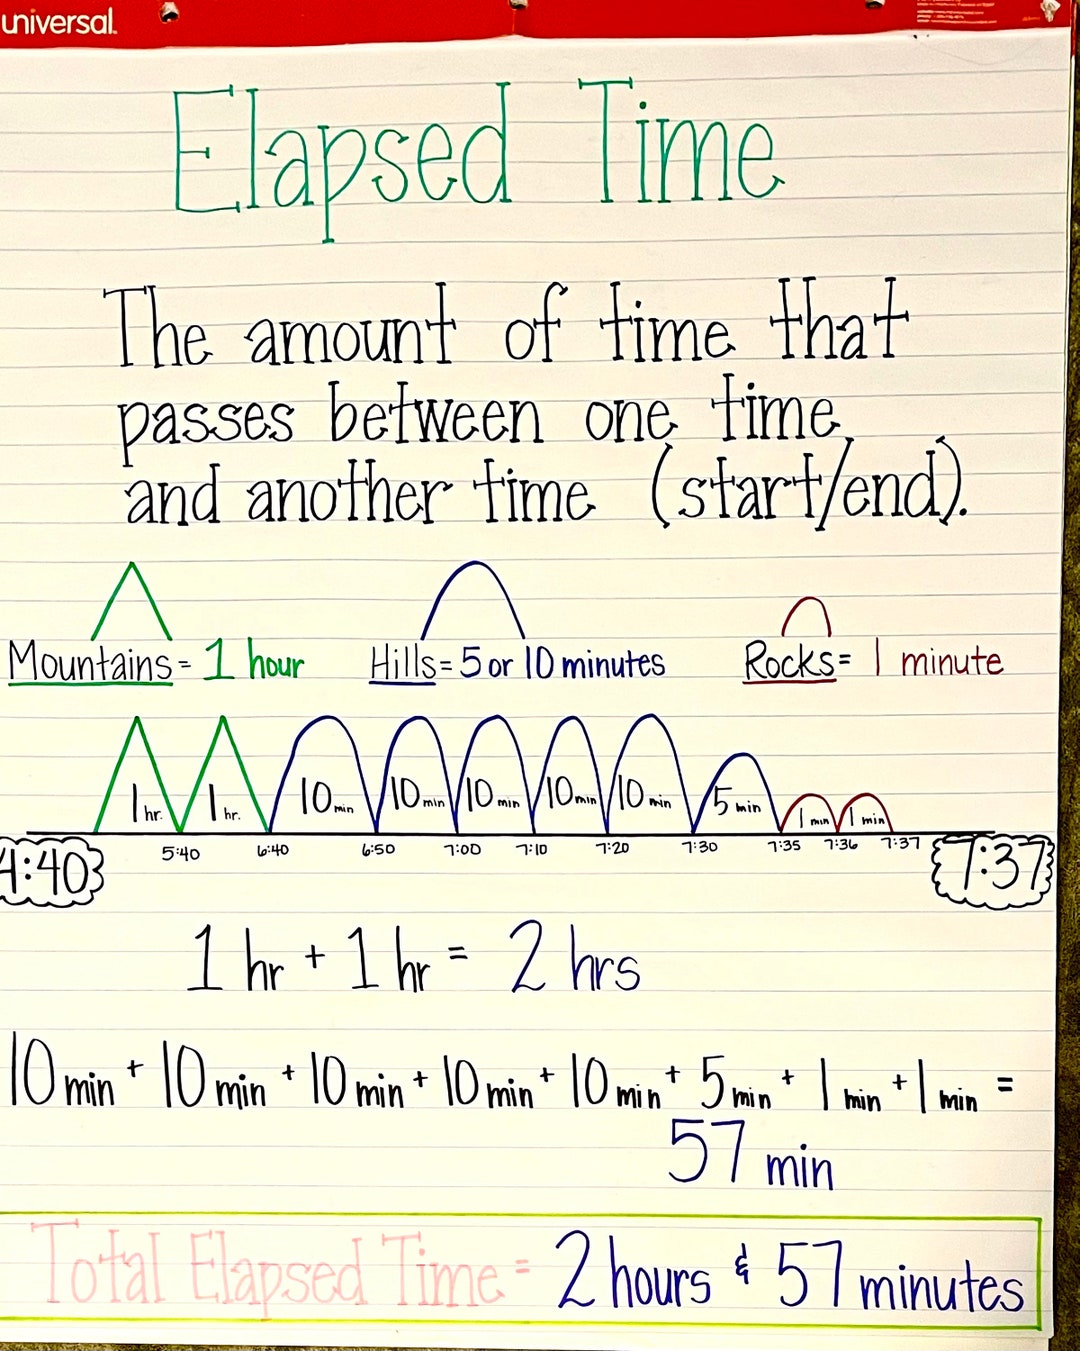 universal.
Elapsed Time
The amount of time that
passes between one time
and another time (start/end).
Mountains = 1 hour
Hills = 5 or 10 minutes
Rocks = 1 minute
1 hr. 1 hr. 10 min 10 min 10 min 10 min 10 min 5 min 1 min 1 min
4:40 5:40 6:40 6:50 7:00 7:10 7:20 7:30 7:35 7:36 7:37 7:37
1 hr + 1 hr = 2 hrs
10 min + 10 min + 10 min + 10 min + 10 min + 5 min + 1 min + 1 min =
57 min
Total Elapsed Time = 2 hours & 57 minutes